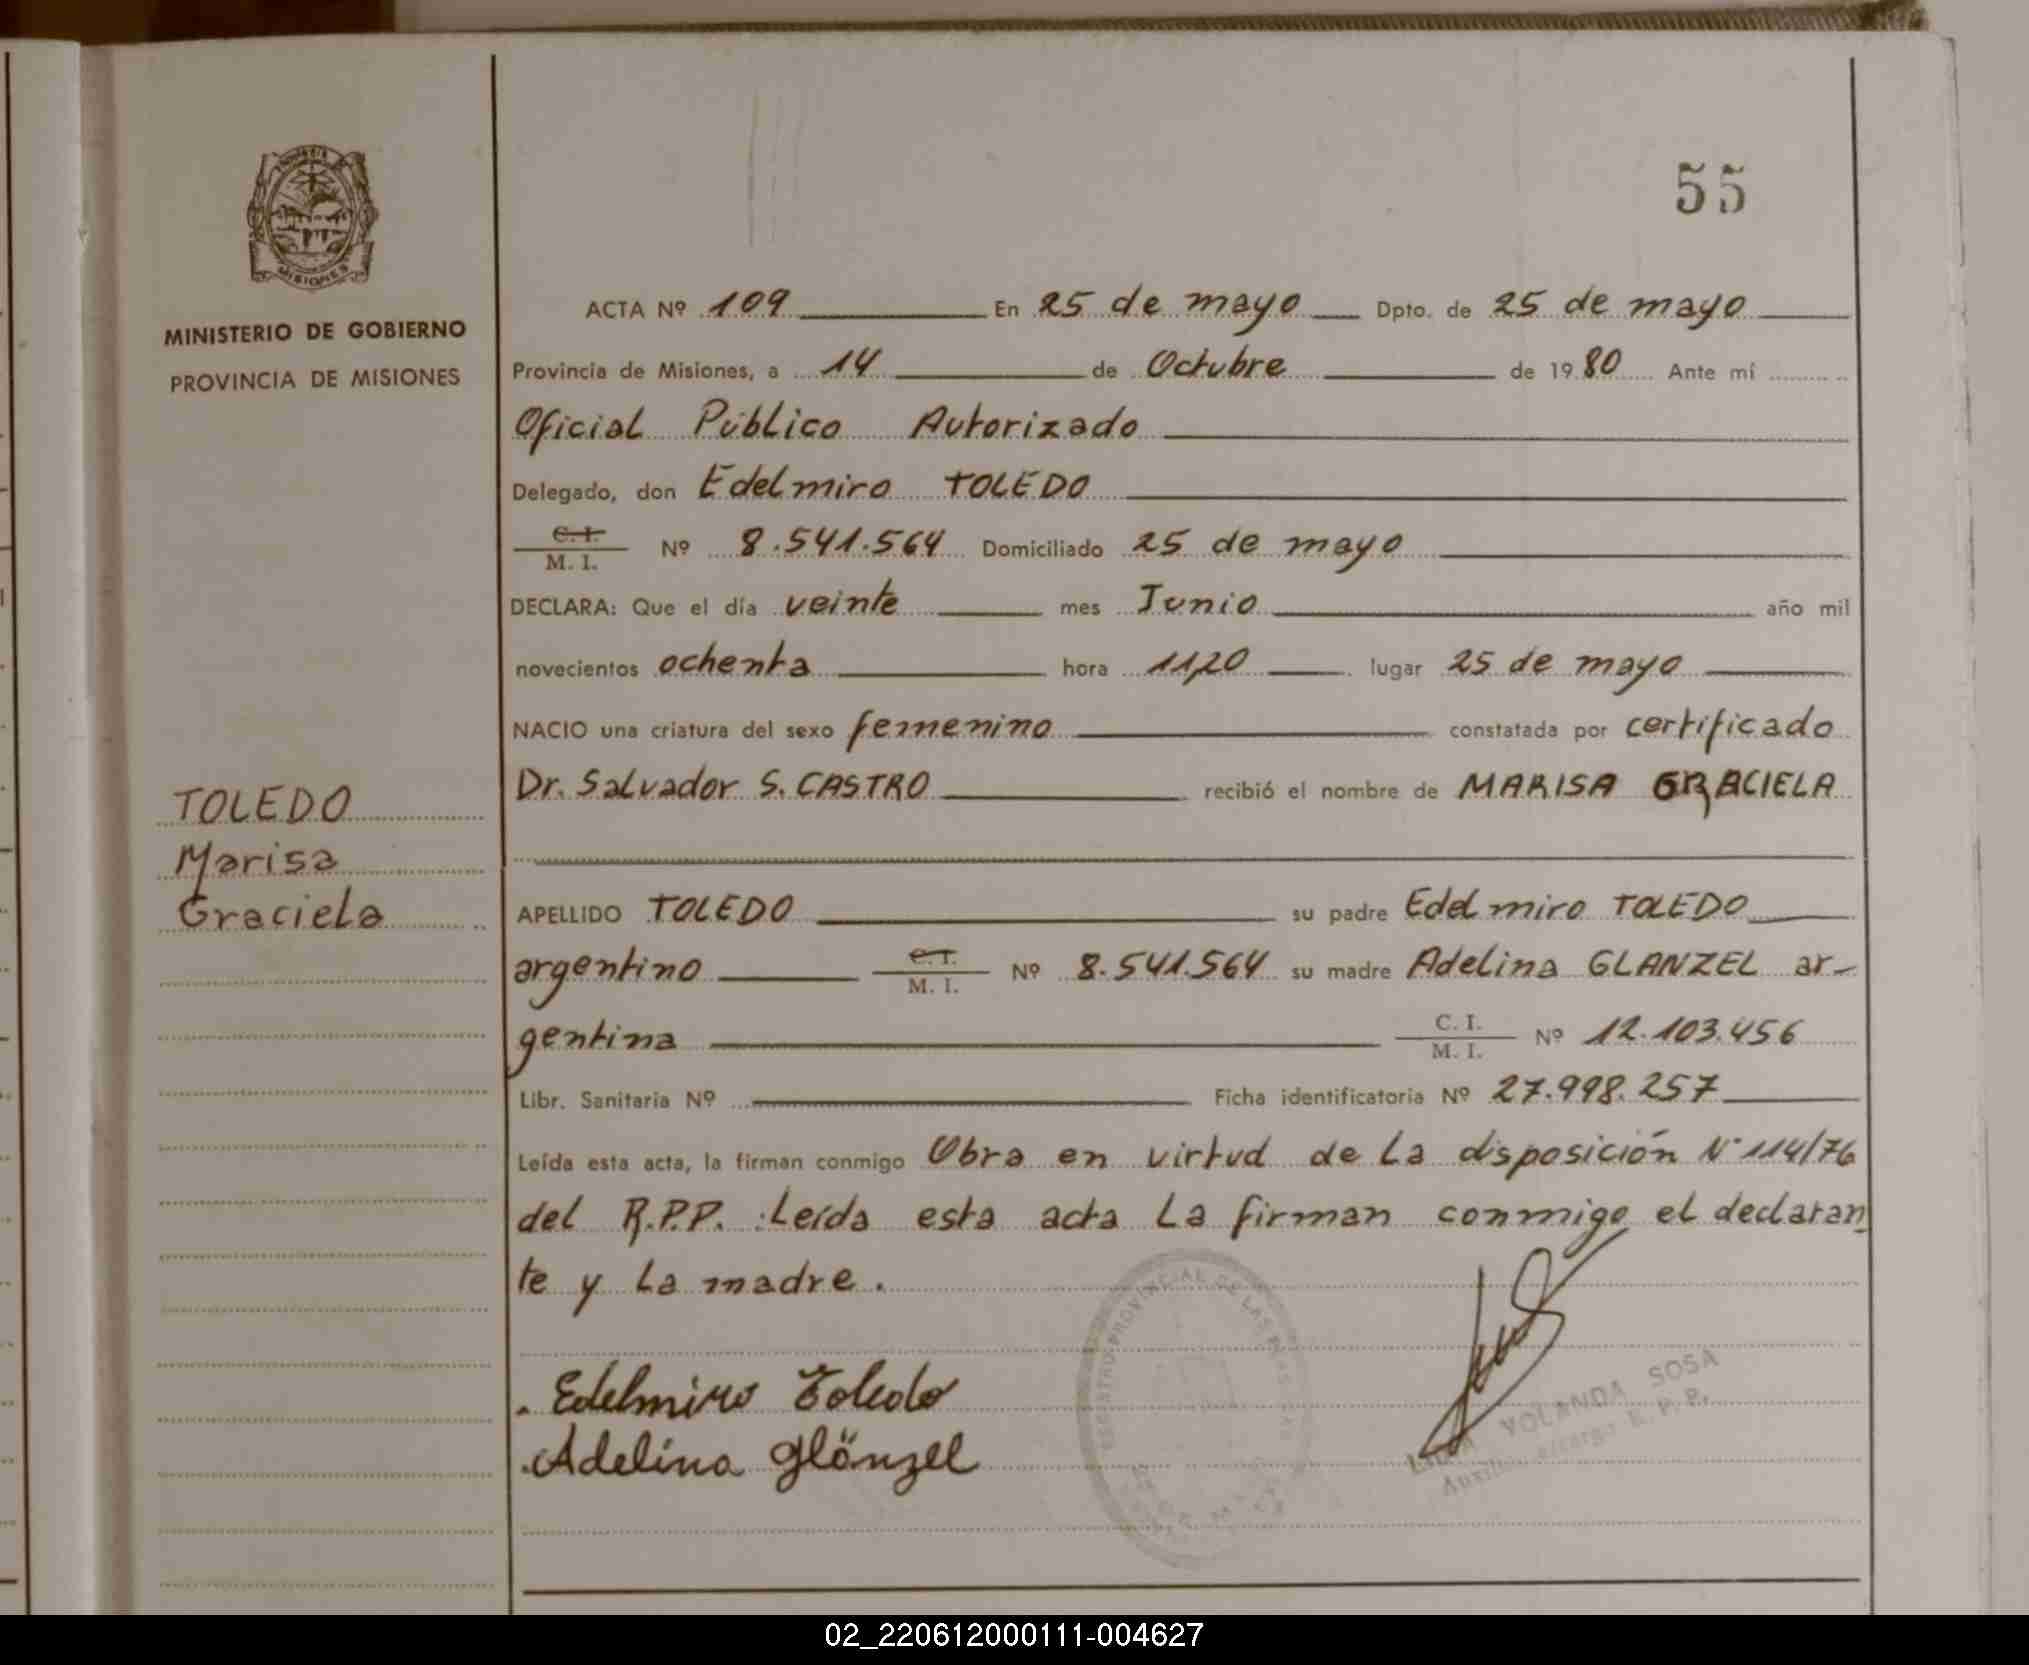 55
MISIONES
MINISTERIO DE GOBIERNO
PROVINCIA DE MISIONES
ACTA Nº 109 En 25 de mayo Dpto. de 25 de mayo
Provincia de Misiones, a 14 de Octubre de 1980 Ante mí
Oficial Público Autorizado
Delegado, don Edelmiro TOLEDO
C. I.
M. I. Nº 8.541.564 Domiciliado 25 de mayo
DECLARA: Que el día veinte mes Junio año mil
novecientos ochenta hora 11,20 lugar 25 de mayo
NACIO una criatura del sexo femenino constatada por certificado
Dr. Salvador S. CASTRO recibió el nombre de MARISA GRACIELA
TOLEDO
Marisa
Graciela
APELLIDO TOLEDO su padre Edelmiro TOLEDO
argentino C. I. M. I. Nº 8.541.564 su madre Adelina GLANZEL ar-
gentina C. I. M. I. Nº 12.103.456
Libr. Sanitaria Nº Ficha identificatoria Nº 27.998.257
Leída esta acta, la firman conmigo Obra en virtud de la disposición Nº 114/76
del R.P.P. Leída esta acta la firman conmigo el declaran
te y la madre.
Edelmiro Toledo
Adelina Glänzel
REGISTRO PROVINCIAL DE LAS PERSONAS
YOLANDA SOSA
R. P. P.
02_220612000111-004627